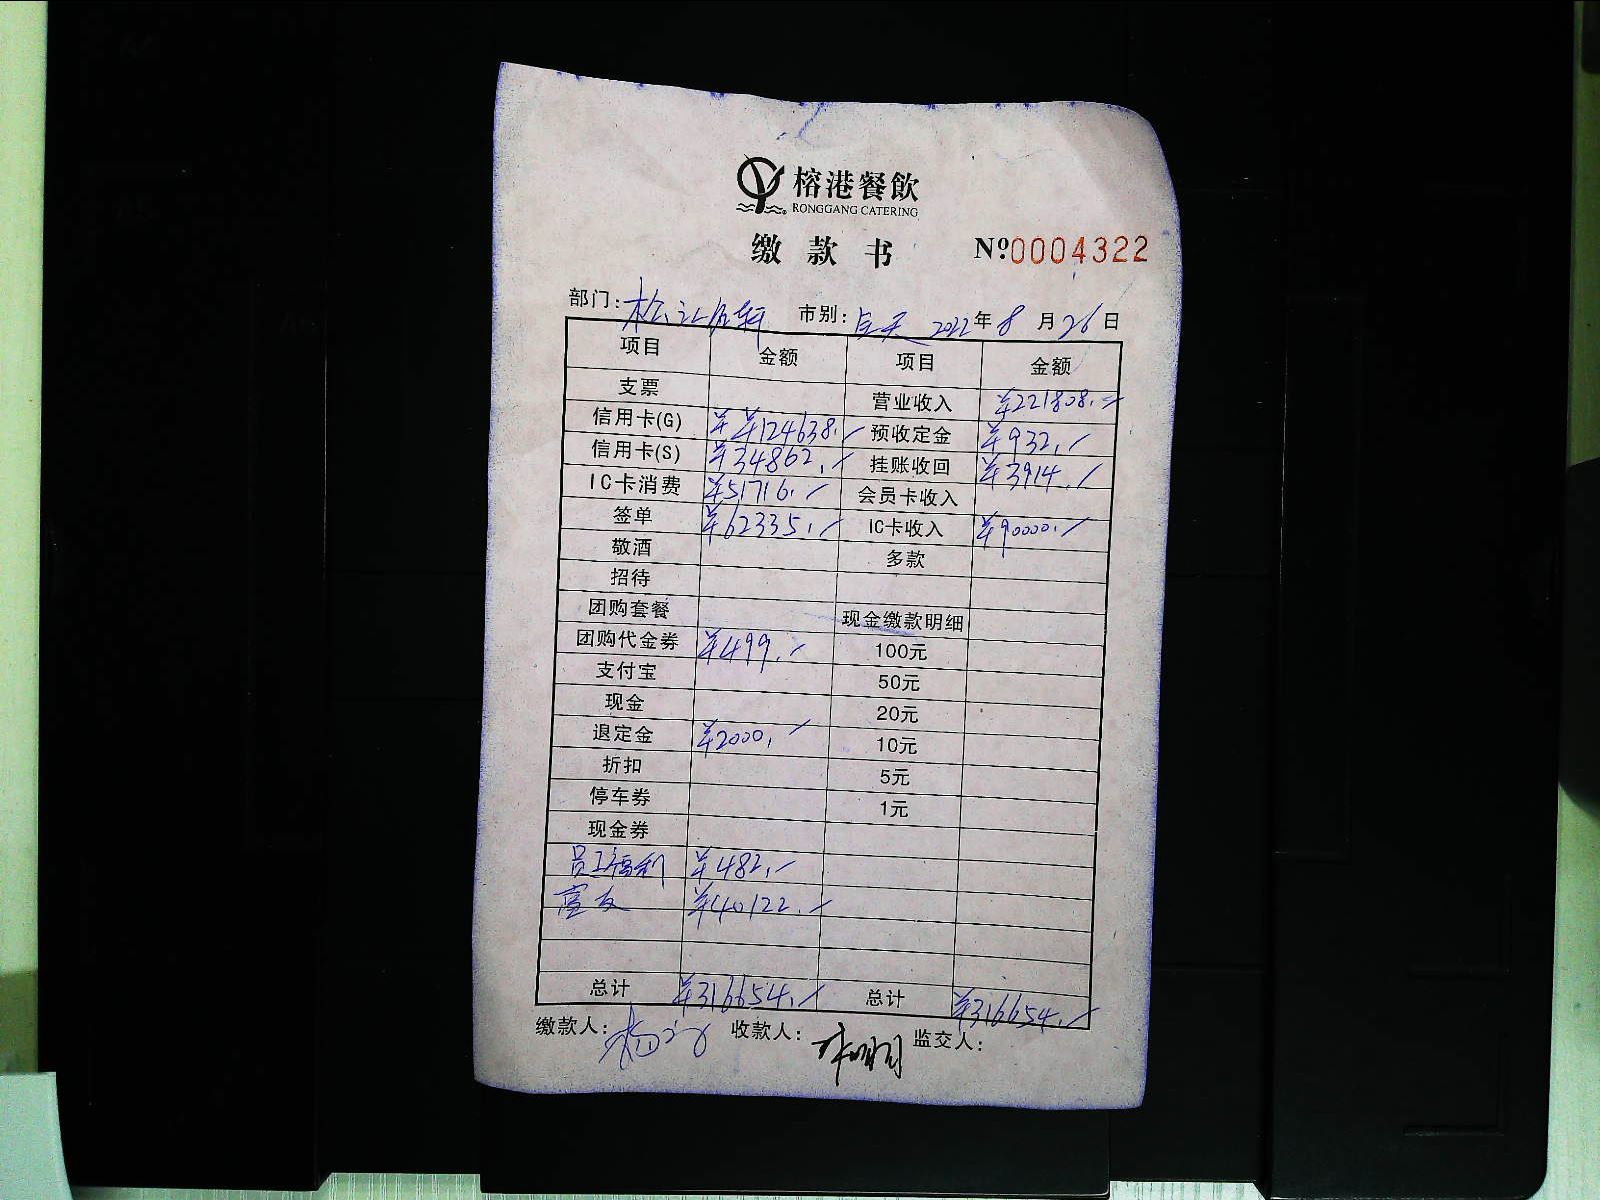 榕港餐飲
RONGGANG CATERING
缴款书 №0004322
部门: 市别: 全天 2022年8月26日
项目 金额 项目 金额
支票 营业收入 ¥221808.-
信用卡(G) ¥ ¥124638.- 预收定金 ¥932.-
信用卡(S) ¥34862.- 挂账收回 ¥3914.-
IC卡消费 ¥51716.- 会员卡收入
签单 ¥62335.- IC卡收入 ¥90000.-
敬酒 多款
招待
团购套餐 现金缴款明细
团购代金券 ¥499.- 100元
支付宝 50元
现金 20元
退定金 ¥2000.- 10元
折扣 5元
停车券 1元
现金券
员工福利 ¥482.-
富友 ¥40122.-
总计 ¥316654.- 总计 ¥316654.-
缴款人: 收款人: 监交人: